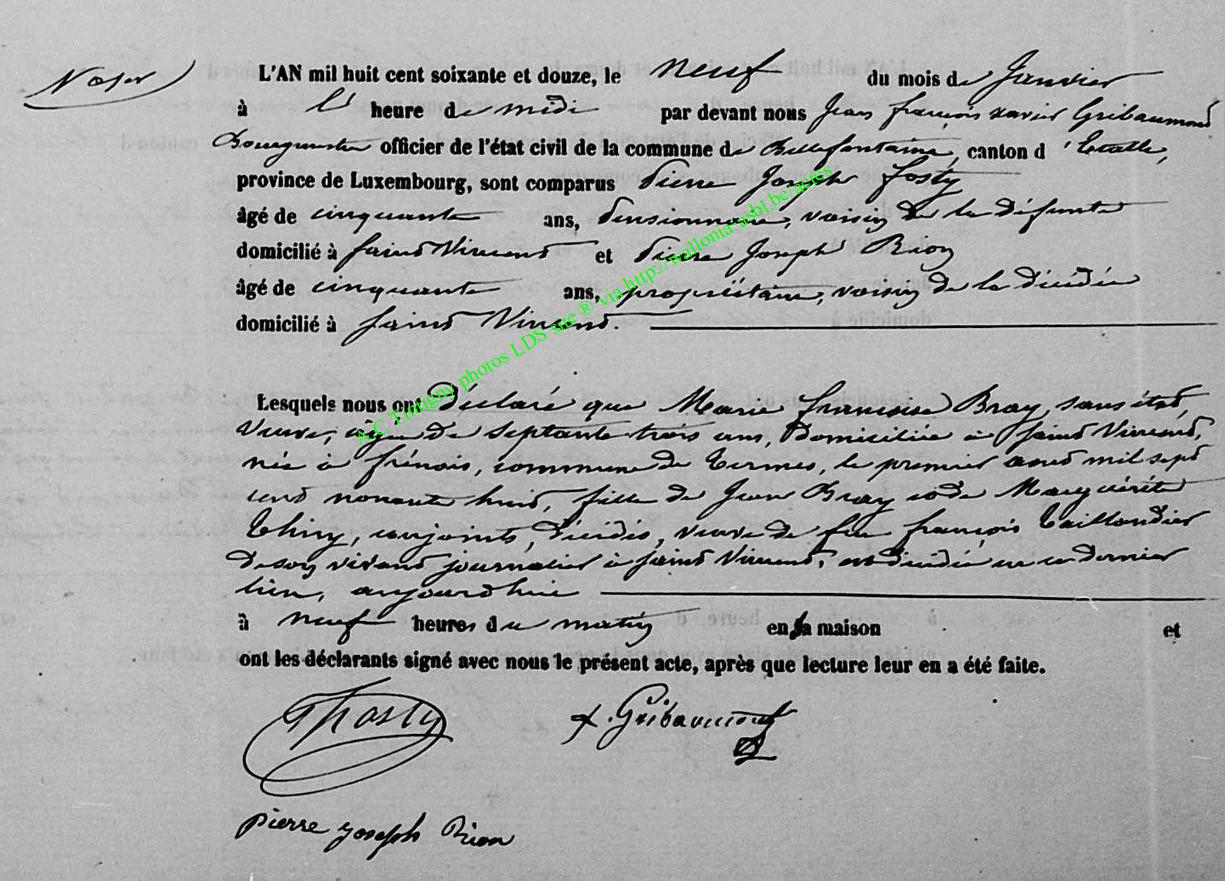 L'AN mil huit cent soixante et douze, le neuf du mois de Janvier
à l' heure de midi par devant nous Jean françois xavier Gribaumont
Bourgmestre officier de l'état civil de la commune de Bellefontaine, canton d'Etalle,
province de Luxembourg, sont comparus Pierre Joseph Fosty
âgé de cinquante ans, Pensionnaire, voisin de la défunte
domicilié à Saint Vincent et Pierre Joseph Rion
âgé de cinquante ans, propriétaire, voisin de la décédée
domicilié à Saint Vincent.
Lesquels nous ont Déclaré que Marie françoise Bray, sans état,
Veuve, agée de septante trois ans, Domiciliée à Saint Vincent,
née à frénois, commune de Termes, le premier aout mil sept
cent nonante huit, fille de Jean Bray et de Marguérite
Thiry, conjoints, Décédés, veuve de feu françois Taillandier
de son vivant journalier à Saint Vincent, est décédée en ce dernier
lieu, aujourd'hui
à neuf heures du matin en sa maison et
ont les déclarants signé avec nous le présent acte, après que lecture leur en a été faite.
Fosty x. Gribaumont
pierre joseph Rion
AC Tintigny photos LDS site ® via http://wallonia-asbl.be/actes